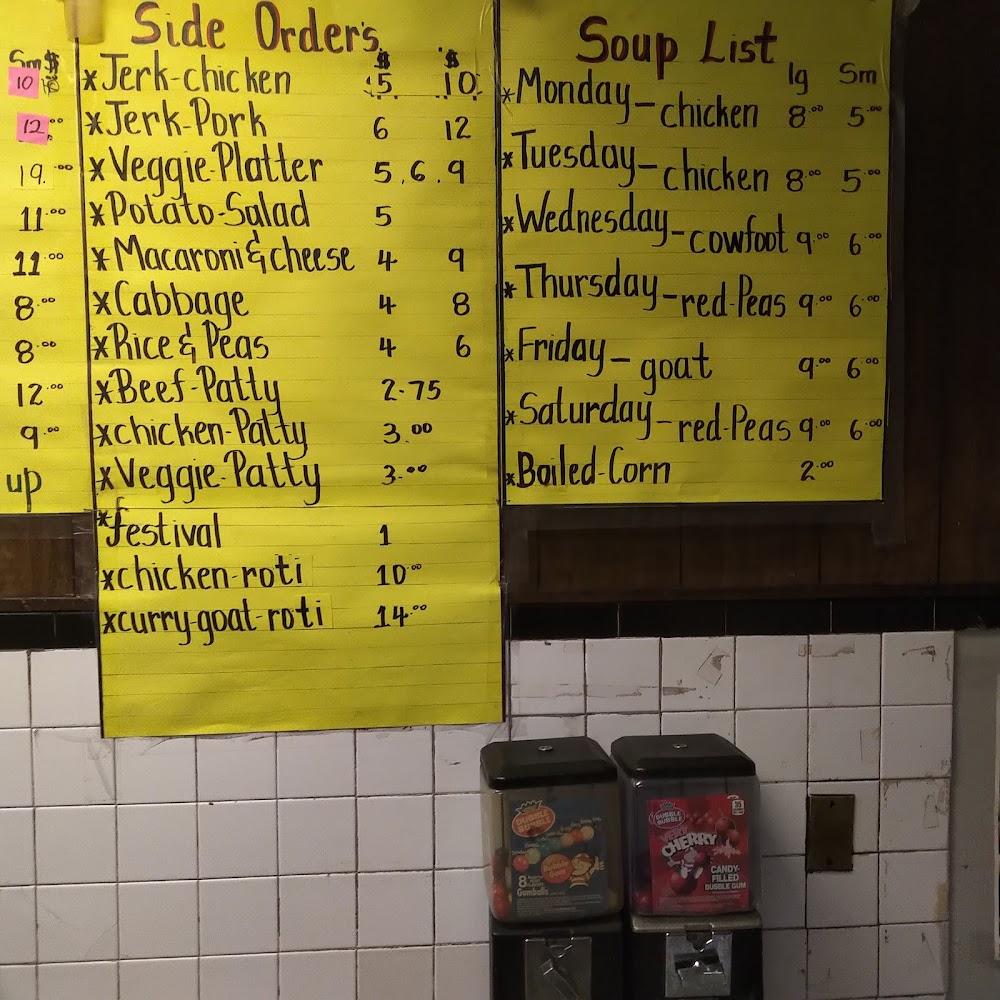 Sm $
10
12.00
19.00
11.00
11.00
8.00
8.00
12.00
9.00
up
Side Order's
$ $
*Jerk-chicken 5 10
*Jerk-Pork 6 12
*Veggie-Platter 5,6,9
*Potato-Salad 5
*Macaroni & cheese 4 9
*Cabbage 4 8
*Rice & Peas 4 6
*Beef-Patty 2.75
*chicken-Patty 3.00
*Veggie-Patty 3.00
*festival 1
*chicken-roti 10.00
*curry-goat-roti 14.00
Soup List
lg Sm
*Monday-chicken 8.00 5.00
*Tuesday-chicken 8.00 5.00
*Wednesday-cowfoot 9.00 6.00
*Thursday-red-Peas 9.00 6.00
*Friday-goat 9.00 6.00
*Saturday-red-Peas 9.00 6.00
*Boiled-Corn 2.00
DUBBLE
BUBBLE
8
Gumballs
DUBBLE
BUBBLE
VERY
CHERRY
CANDY-
FILLED
BUBBLE GUM